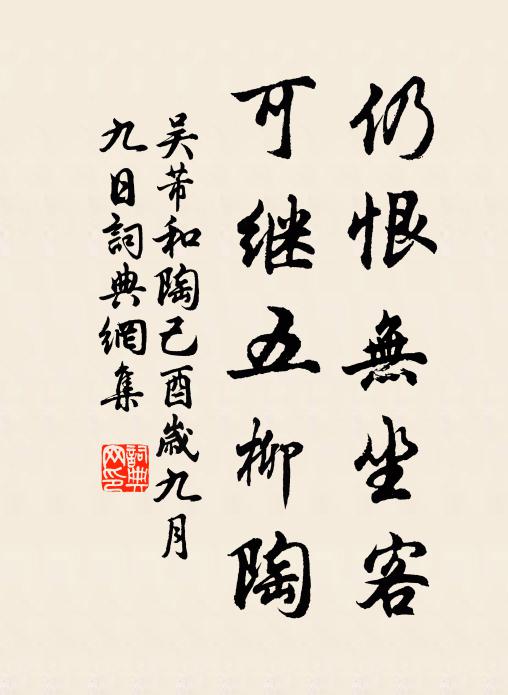 仍恨無坐客
可继五柳陶
吴芾和陶己酉歲九月
九日詞典網集
詞典
网印